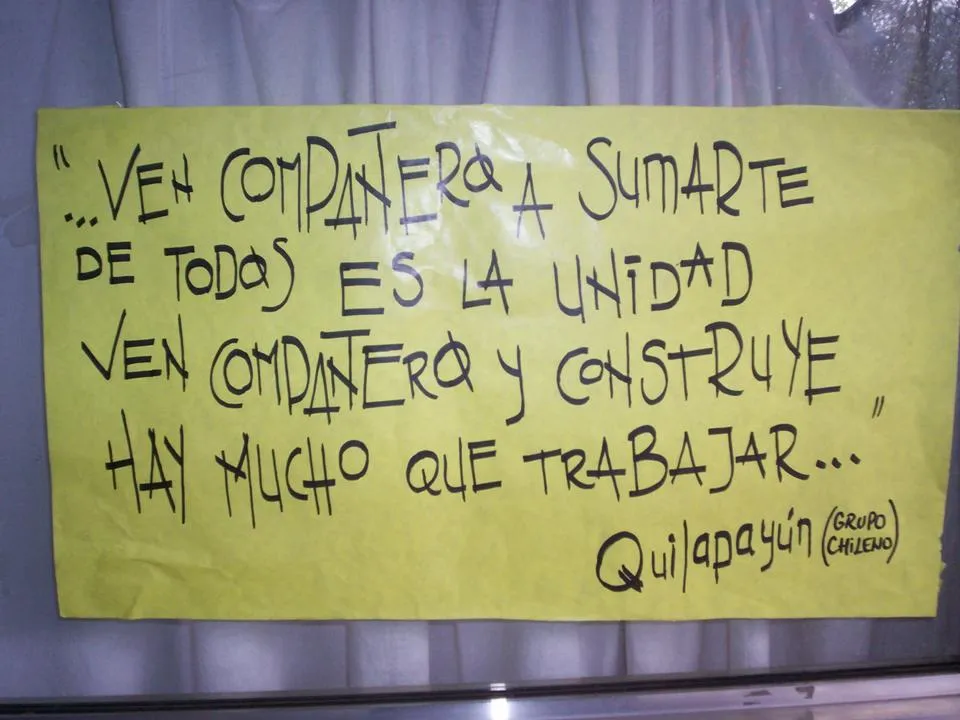 "...VEN COMPAÑER@ A SUMARTE
DE TOD@S ES LA UNIDAD
VEN COMPAÑER@ Y CONSTRUYE
HAY MUCHO QUE TRABAJAR..."
Quilapayún (GRUPO CHILENO)